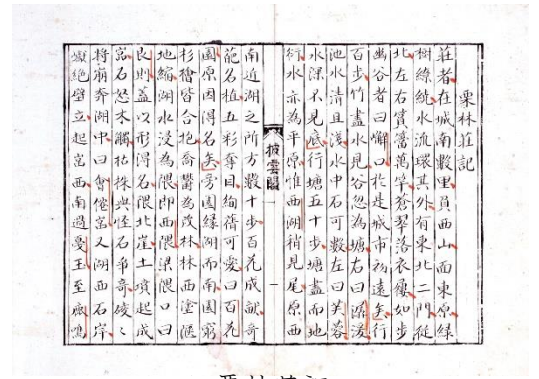 栗林莊記
莊者在城南數里員西山面東原綠
樹綠繞水流環其外有東北二門從
北左右篔簹萬竿蒼翠落衣褸如步
幽谷者曰懈口於是城市初遠矣行
百步竹盡水見谷忽為塘右曰潺湲
池水清且淺水中石可數左曰芙蓉
水深不見底行塘五十步塘盡而地
衍水亦為平原惟西湖稍見尾原西
披雲閣
一
南近湖之所方數十步百花成畝奇
葩名植五彩奪目絢褥可愛曰百花
園原因得名矣旁園緣湖而南園窮
杉檜皆合抱喬鬱為茂林林西塗匯
地縮湖水浸為隈即西隈梁隈口曰
艮則蓋以形得名隈北崖土墳起成
峦石怒木觸枯株與怪石爭奇磝々
將崩奔湖中曰會僊岩又湖西石岸
巘絕壁立起峦西南過戞玉至鹿鳴
栗林莊記